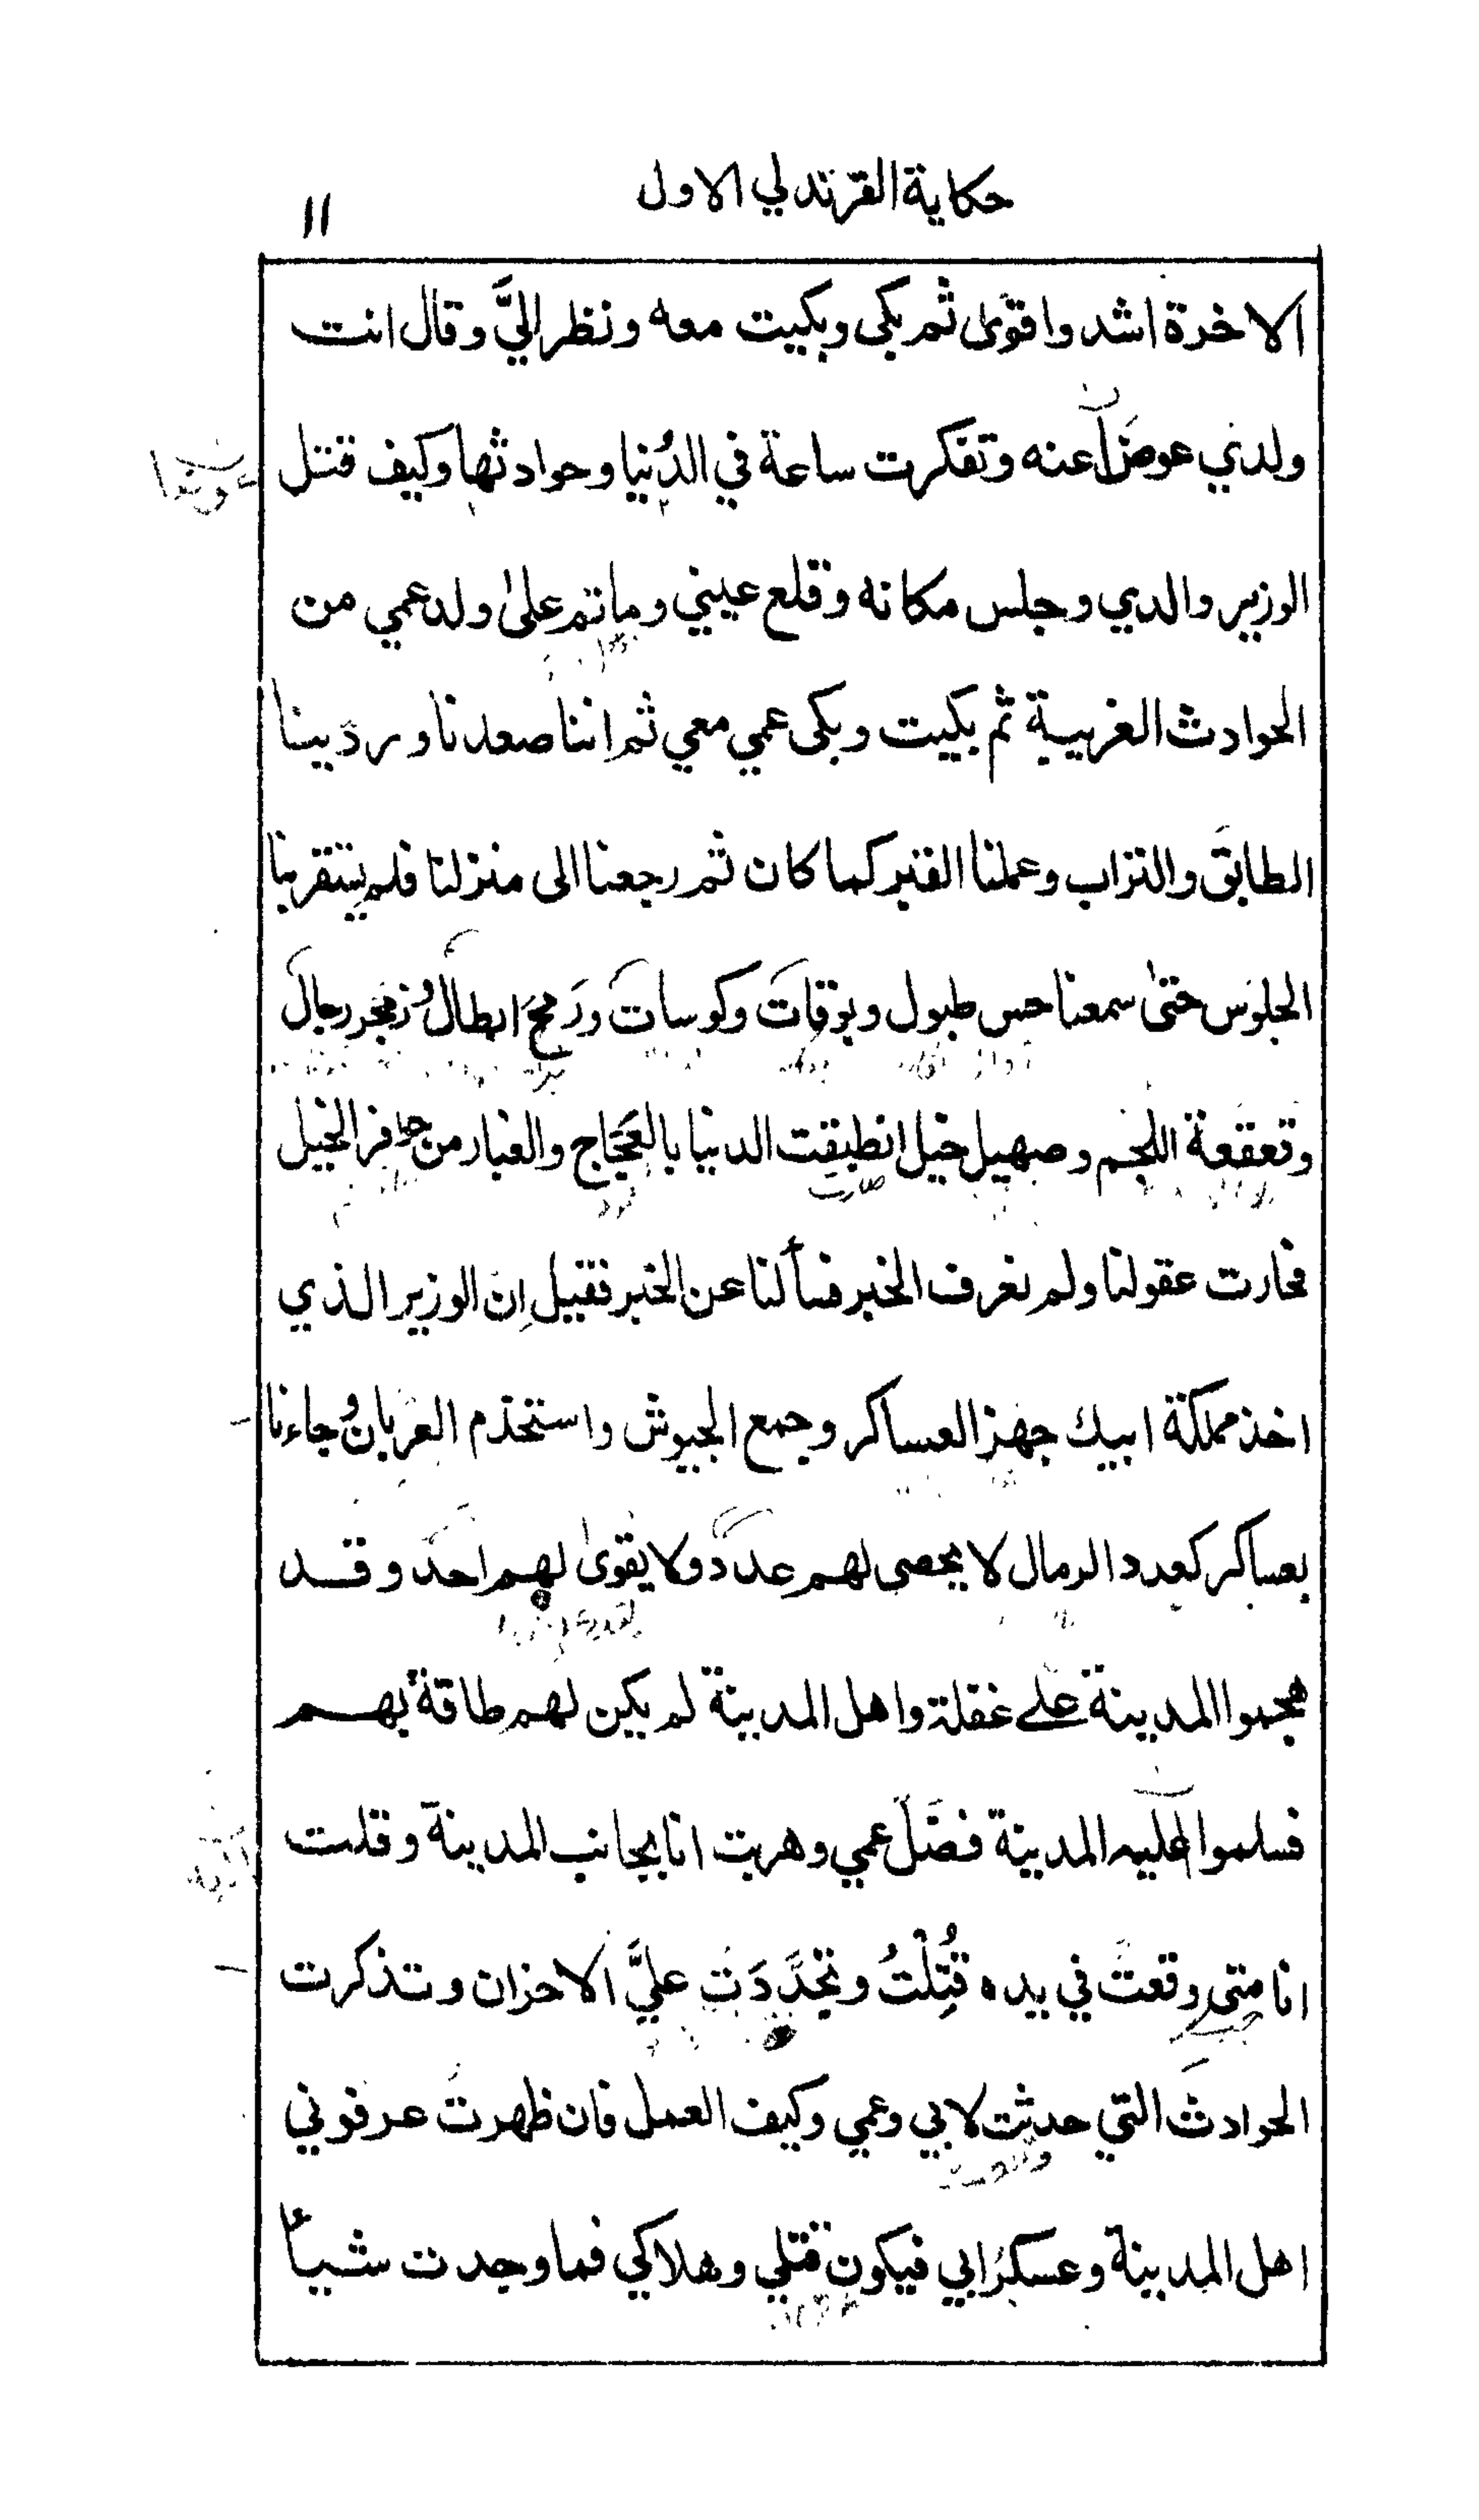 حكاية القرندلي الاول
١١
الاخرة اشد واقوىٰ ثم بكى وبكيت معه ونظر اليَّ وقال انت
ولدي عوضًا عنه وتفكرت ساعة في الدُنيا وحوادثها وكيف قتل
الوزير والدي وجلس مكانه وقلع عيني وما تم علىٰ ولد عمي من
الحوادث الغريبة ثم بكيت وبكى عمي معي ثم اننا صعدنا ورديّنا
الطابق والتراب وعملنا القبر كما كان ثم رجعنا الى منزلنا فلم يستقر بنا
الجلوس حتىٰ سمعنا حس طبول وبوقات وكوسات ورمح ابطال وزنجر رجال
وقعقعة اللجم وصهيل خيل انطبقت الدنيا بالعجاج والغبار من حوافر الخيل
فحارت عقولنا ولم نعرف الخبر فسألنا عن الخبر فقيل ان الوزير الذي
اخذ مملكة ابيك جهز العساكر وجمع الجيوش واستخدم العربان وجاءنا
بعساكر كعدد الرمال لا يحصى لهم عدد ولا يقوىٰ لهم احد وقد
هجموا المدينة على غفلة واهل المدينة لم يكن لهم طاقة بهم
فسلموا اليه المدينة فضل عمي وهربت انا بجانب المدينة وقلت
انا متى وقعت في يده قُتِلْتُ وتجدَّدَت عليَّ الاحزان وتذكرت
الحوادث التي حدثت لابي وعمي وكيف العمل فان ظهرت عرفوني
اهل المدينة وعسكر ابي فيكون قتلي وهلاكي فما وجدت شيأً